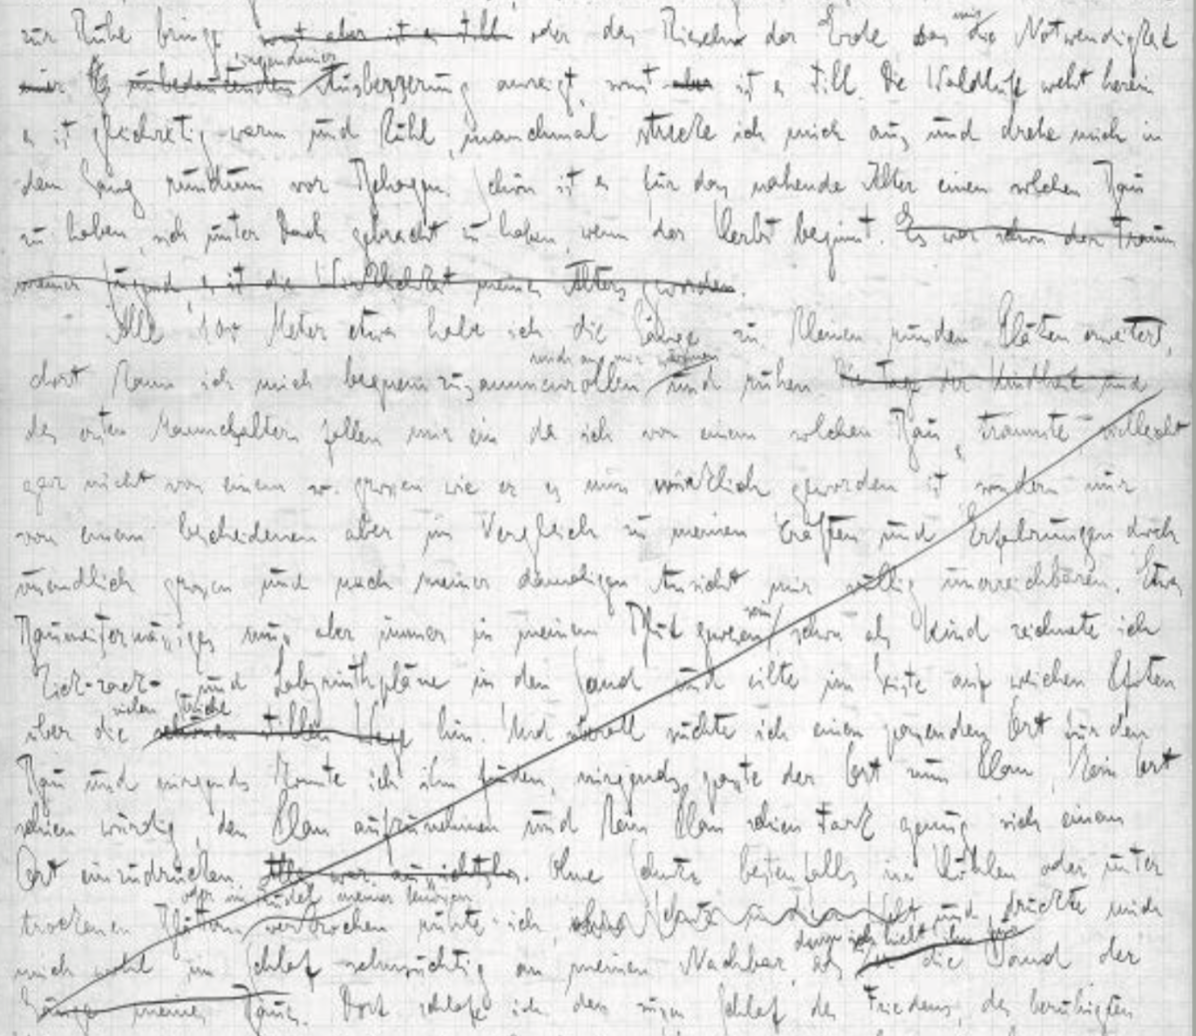 zur Ruhe bringe sonst aber ist es still oder das Rieseln der Erde das mir die Notwendigkeit
irgendeiner
einer unbedeutenden Ausbesserung anzeigt, sonst aber ist es still. Die Waldluft weht herein
es ist gleichzeitig warm und kühl, manchmal strecke ich mich aus und drehe mich in
dem Gang rundum vor Behagen. Schön ist es für das nahende Alter einen solchen Bau
zu haben, sich unter Dach gebracht zu haben, wenn der Herbst beginnt. Es war schon der Traum
meiner Jugend, es ist die Wirklichkeit meines Alters geworden.
Alle 100 Meter etwa habe ich die Gänge zu kleinen runden Plätzen erweitert,
mich an mir wärmen
dort kann ich mich bequem zusammenrollen und ruhen Die Tage der Kindheit und
des ersten Mannesalters fallen mir ein da ich von einem solchen Bau träumte vielleicht
gar nicht von einem so grossen wie er es nun wirklich geworden ist sondern nur
von einem bescheidenen aber im Vergleich zu meinen Kräften und Erfahrungen doch
unendlich grossen und nach meiner damaligen Ansicht mir völlig unerreichbaren. Etwas
Baumeistermässiges muss aber immer in meinem Blut gewesen sein, schon als Kind zeichnete ich
Zick-zack- und Labyrinthpläne in den Sand und eilte im Geiste auf weichen Pfoten
vielen Striche
über die schönen stillen Wege hin. Und überall suchte ich einen passenden Ort für den
Bau und nirgends konnte ich ihn finden, nirgends passte der Ort zum Plan, kein Ort
schien würdig, den Plan aufzunehmen und kein Plan schien stark genug sich einem
Ort einzudrücken. Alles war aussichtslos. Ohne Schutz bestenfalls in Höhlen oder unter
oder im Rudel meiner Genossen
trockenen Blättern verkrochen ruhte ich, ohne Schutz in der Welt und drückte mich
denn ich hielt ihn für
mich wohl im Schlaf sehnsüchtig an meinen Nachbar als an die Wand der
Gänge meines Baues. Dort schlafe ich den süssen Schlaf des Friedens, des beruhigten